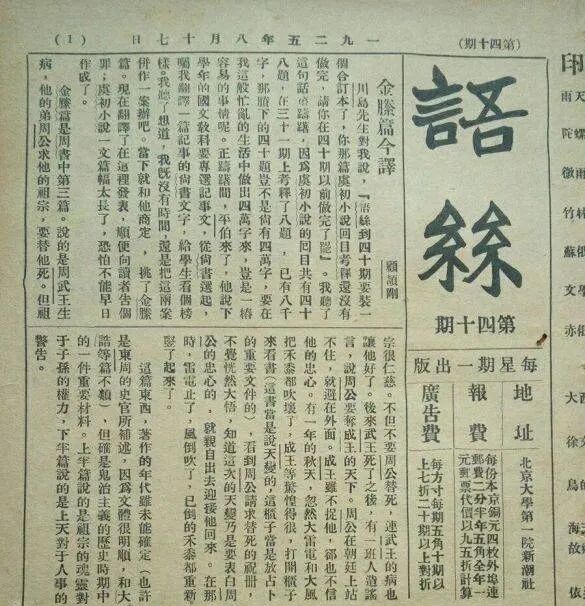 (第四十期)
一九二五年八月十七日
(1)
語絲
第四十期
每星期一出版
地址
北京大學第一院新潮社
報費
每份本京銅元四枚外埠連
郵費二分半年五角全年一
元郵票代價以九五折計算
廣告費
每方寸每期五角十期以
上七折二十期以上對折
金縢篇今譯
顧頡剛
川島先生對我說，『語絲到四十期要裝一
個合訂本了，你那篇虞初小說回目考釋還沒有
做完，請你在四十期以前做完了罷』。我聽了
這句話很躊躇，因爲虞初小說的回目共有四十
八題，在三十一期上考釋了八題，已有八千
字，那賸下的四十題豈不是尙有四萬字，要在
我這般忙亂的生活中做出四萬字來，豈是一樁
容易的事情呢。正躊躇間，平伯來了，他說下
學年的國文敎科要專選記事文，從尙書選起，
囑我翻譯一篇記事的尙書文字，給學生看個榜
樣。我聽了想道，我旣沒有時間，還是把這兩案
併作一案辦吧。當下就和他商定，挑了金縢
篇。現在翻譯了在這裡發表，順便向讀者吿個
罪；虞初小說一文篇幅太長了，恐怕不能早日
作成了。
金縢篇是周書中第三篇。說的是周武王生
病，他的弟周公求他的祖宗，要替他死。但祖
宗很仁慈，不但不要周公替死，連武王的病也
讓他好了。後來武王死了之後，有一班人造謠
言，說周公要奪成王的天下。周公在朝廷上站
不住，就避在外面。成王雖不捉他，卻也不信
他的忠心。有一年的秋天，忽然大雷電和大風
把禾黍都吹壞了，成王等驚惶得很，打開櫃子
來看書（這書當是說天變的，這櫃子當是放占卜
的重要文件的），看到周公請求替死的祝册，
不覺恍然大悟，知道這次的天變乃是要表白周
公的忠心的，就親自出去迎接他回來。在那
時，雷電止了，風倒吹了，已倒的禾黍都重新
豎了起來了。
這篇東西，著作的年代雖未能確定（也許
是東周的史官所補述，因爲文體很明順，和大
誥等篇不類），但確是鬼治主義的歷史時期中
的一件重要材料。上半篇說的是祖宗的魂靈對
于子孫的權力，下半篇說的是上天對于人事的
警吿。